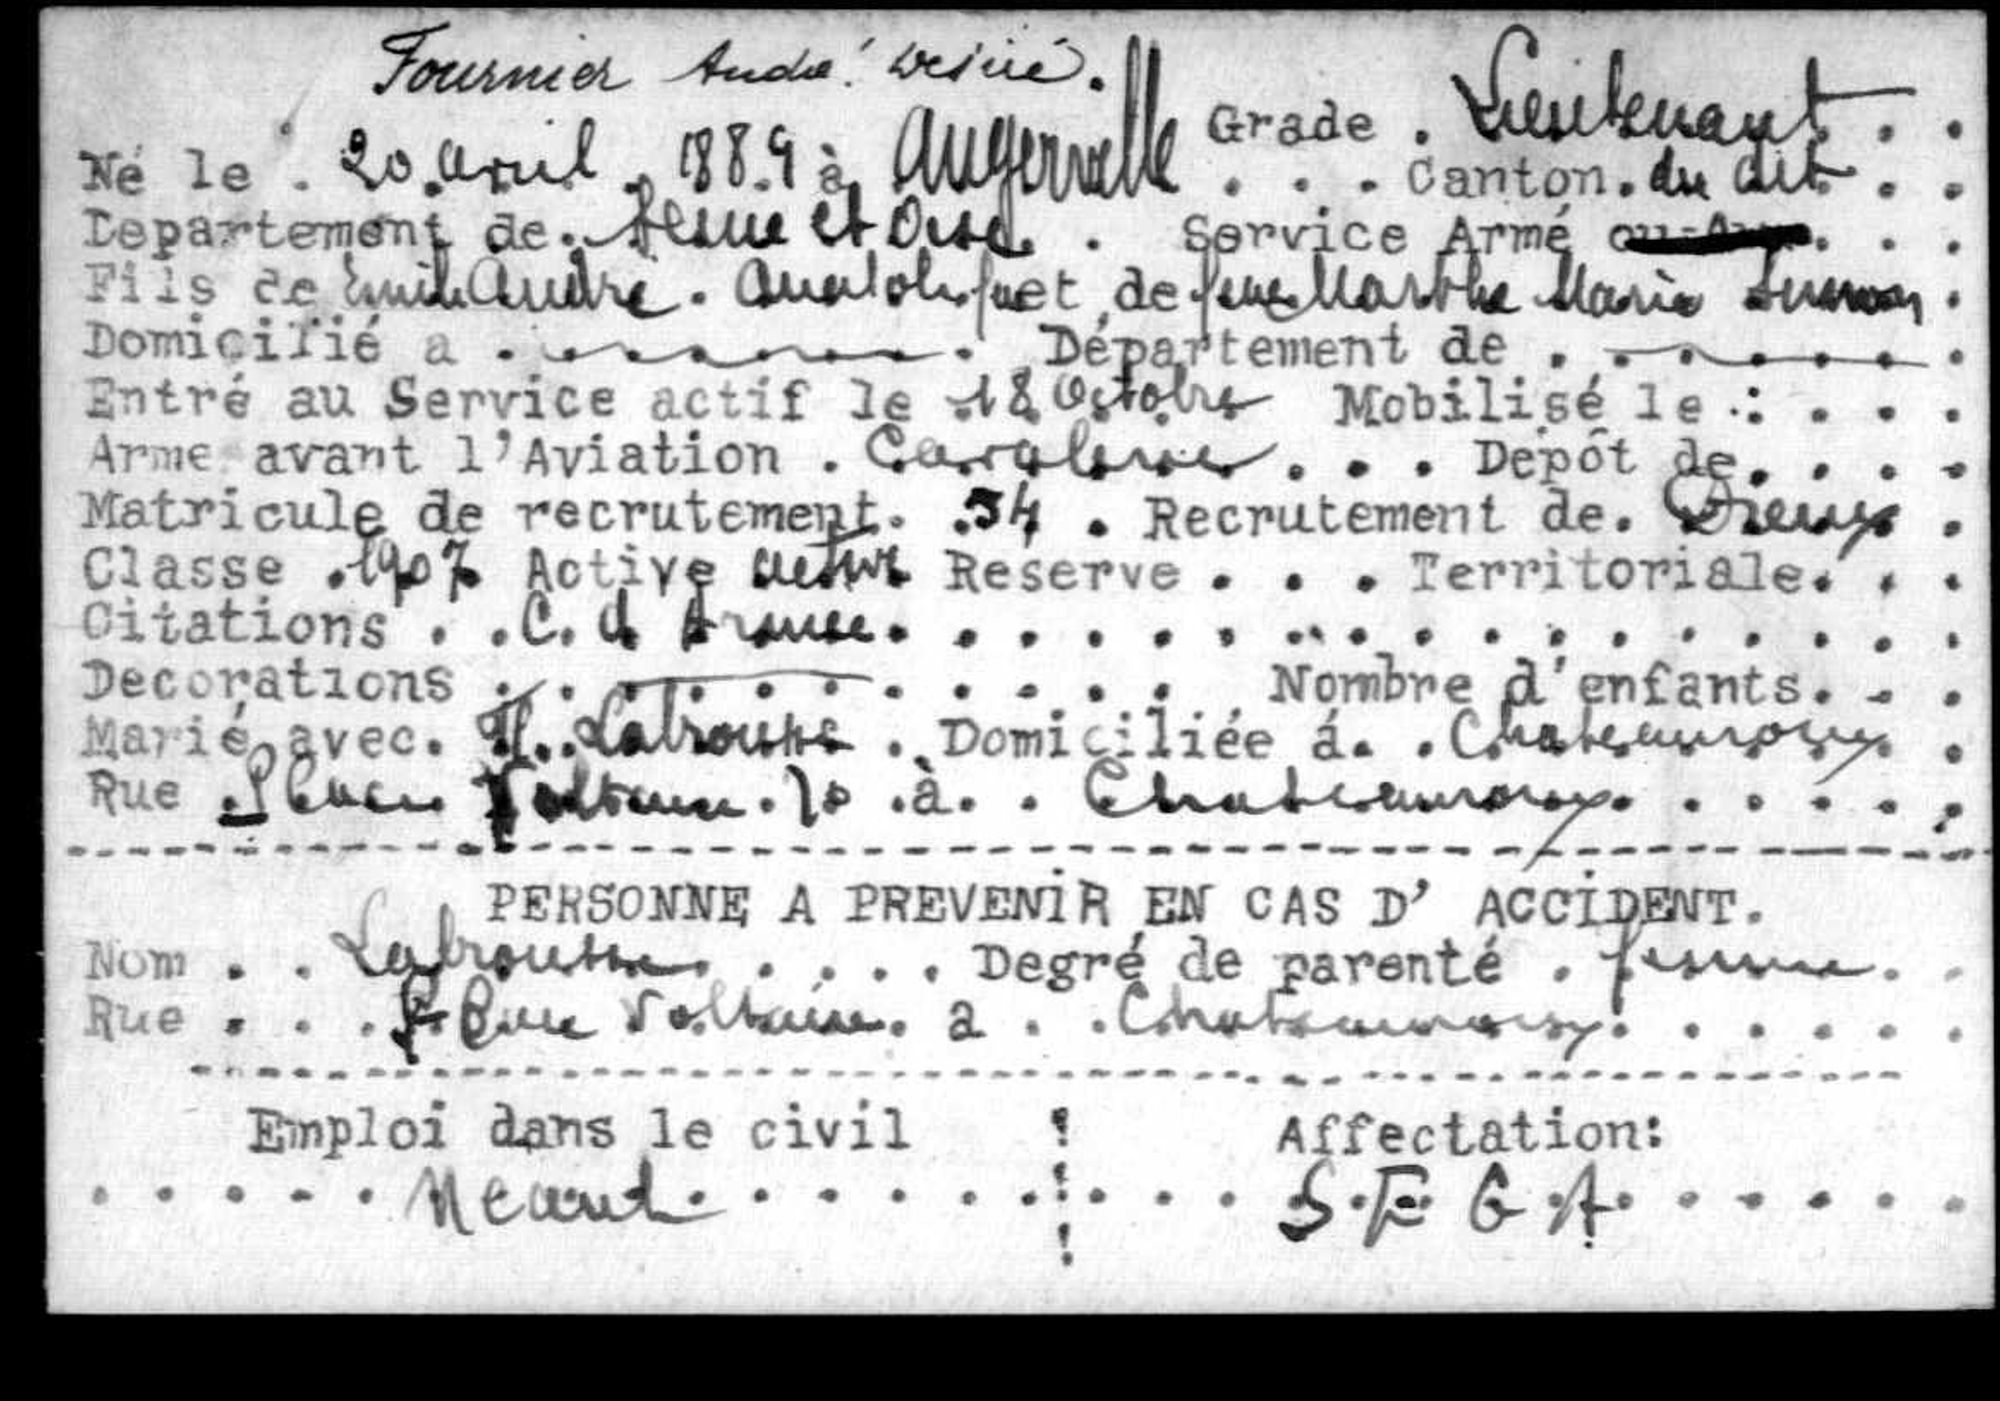 Fournier André Désiré.
Grade . Lieutenant . . .
Né le . 20 avril . 1889 à Augerville . . . Canton. du dit . .
Departement de. Seine et Oise. . Service Armé
Fils de Emile André. Anatole et de feue Marthe Marie
Domicilié a . . Département de . .
Entré au Service actif le 18 Octobre Mobilisé le . : . . .
Arme avant l'Aviation . Cavalerie . . . Dépôt de. . . .
Matricule de recrutement. .54 . Recrutement de. Dreux .
Classe .1907. Active active Reserve . . . Territoriale. . .
Citations . . C. d Armée. . . . . . . . . . . . . . . . .
Decorations . . . . . . . . . . . Nombre d'enfants. . .
Marié avec. H. Labrousse . Domiciliée á. . Chateauroux .
Rue Place Voltaire. 10 .à. . Chateauroux. . . . . .
PERSONNE A PREVENIR EN CAS D' ACCIDENT.
Nom . . Labrousse. . . . . Degré de parenté . femme. .
Rue . . . Place Voltaire. a . . Chateauroux. . . . . .
Emploi dans le civil ! Affectation:
. . . . . Néant . . . . . . ! . . . S. E G A. . . . . .
!